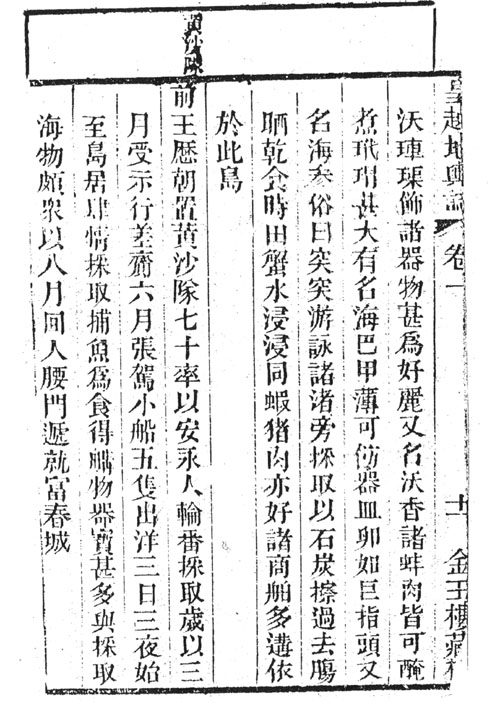 皇越地輿誌 卷一 十一 金玉樓藏板
沃𤥭璖飾諸器物甚爲好麗又名沃香諸蚌肉皆可醃
煮玳瑁甚大有名海巴甲薄可飾器皿卵如巨指頭又
名海參俗曰突突游詠諸渚旁採取以石炭擦過去膓
晒乾食時田蟹水浸浸同蝦猪肉亦好諸商舶多遘依
於此島
黄沙隊
前王歷朝置黄沙隊七十率以安永人輪番採取歲以三
月受示行差齎六月張駕小船五隻出洋三日三夜始
至島居肆情採取捕魚爲食得艚物器寶甚多與採取
海物頗衆以八月回人腰門遞就富春城